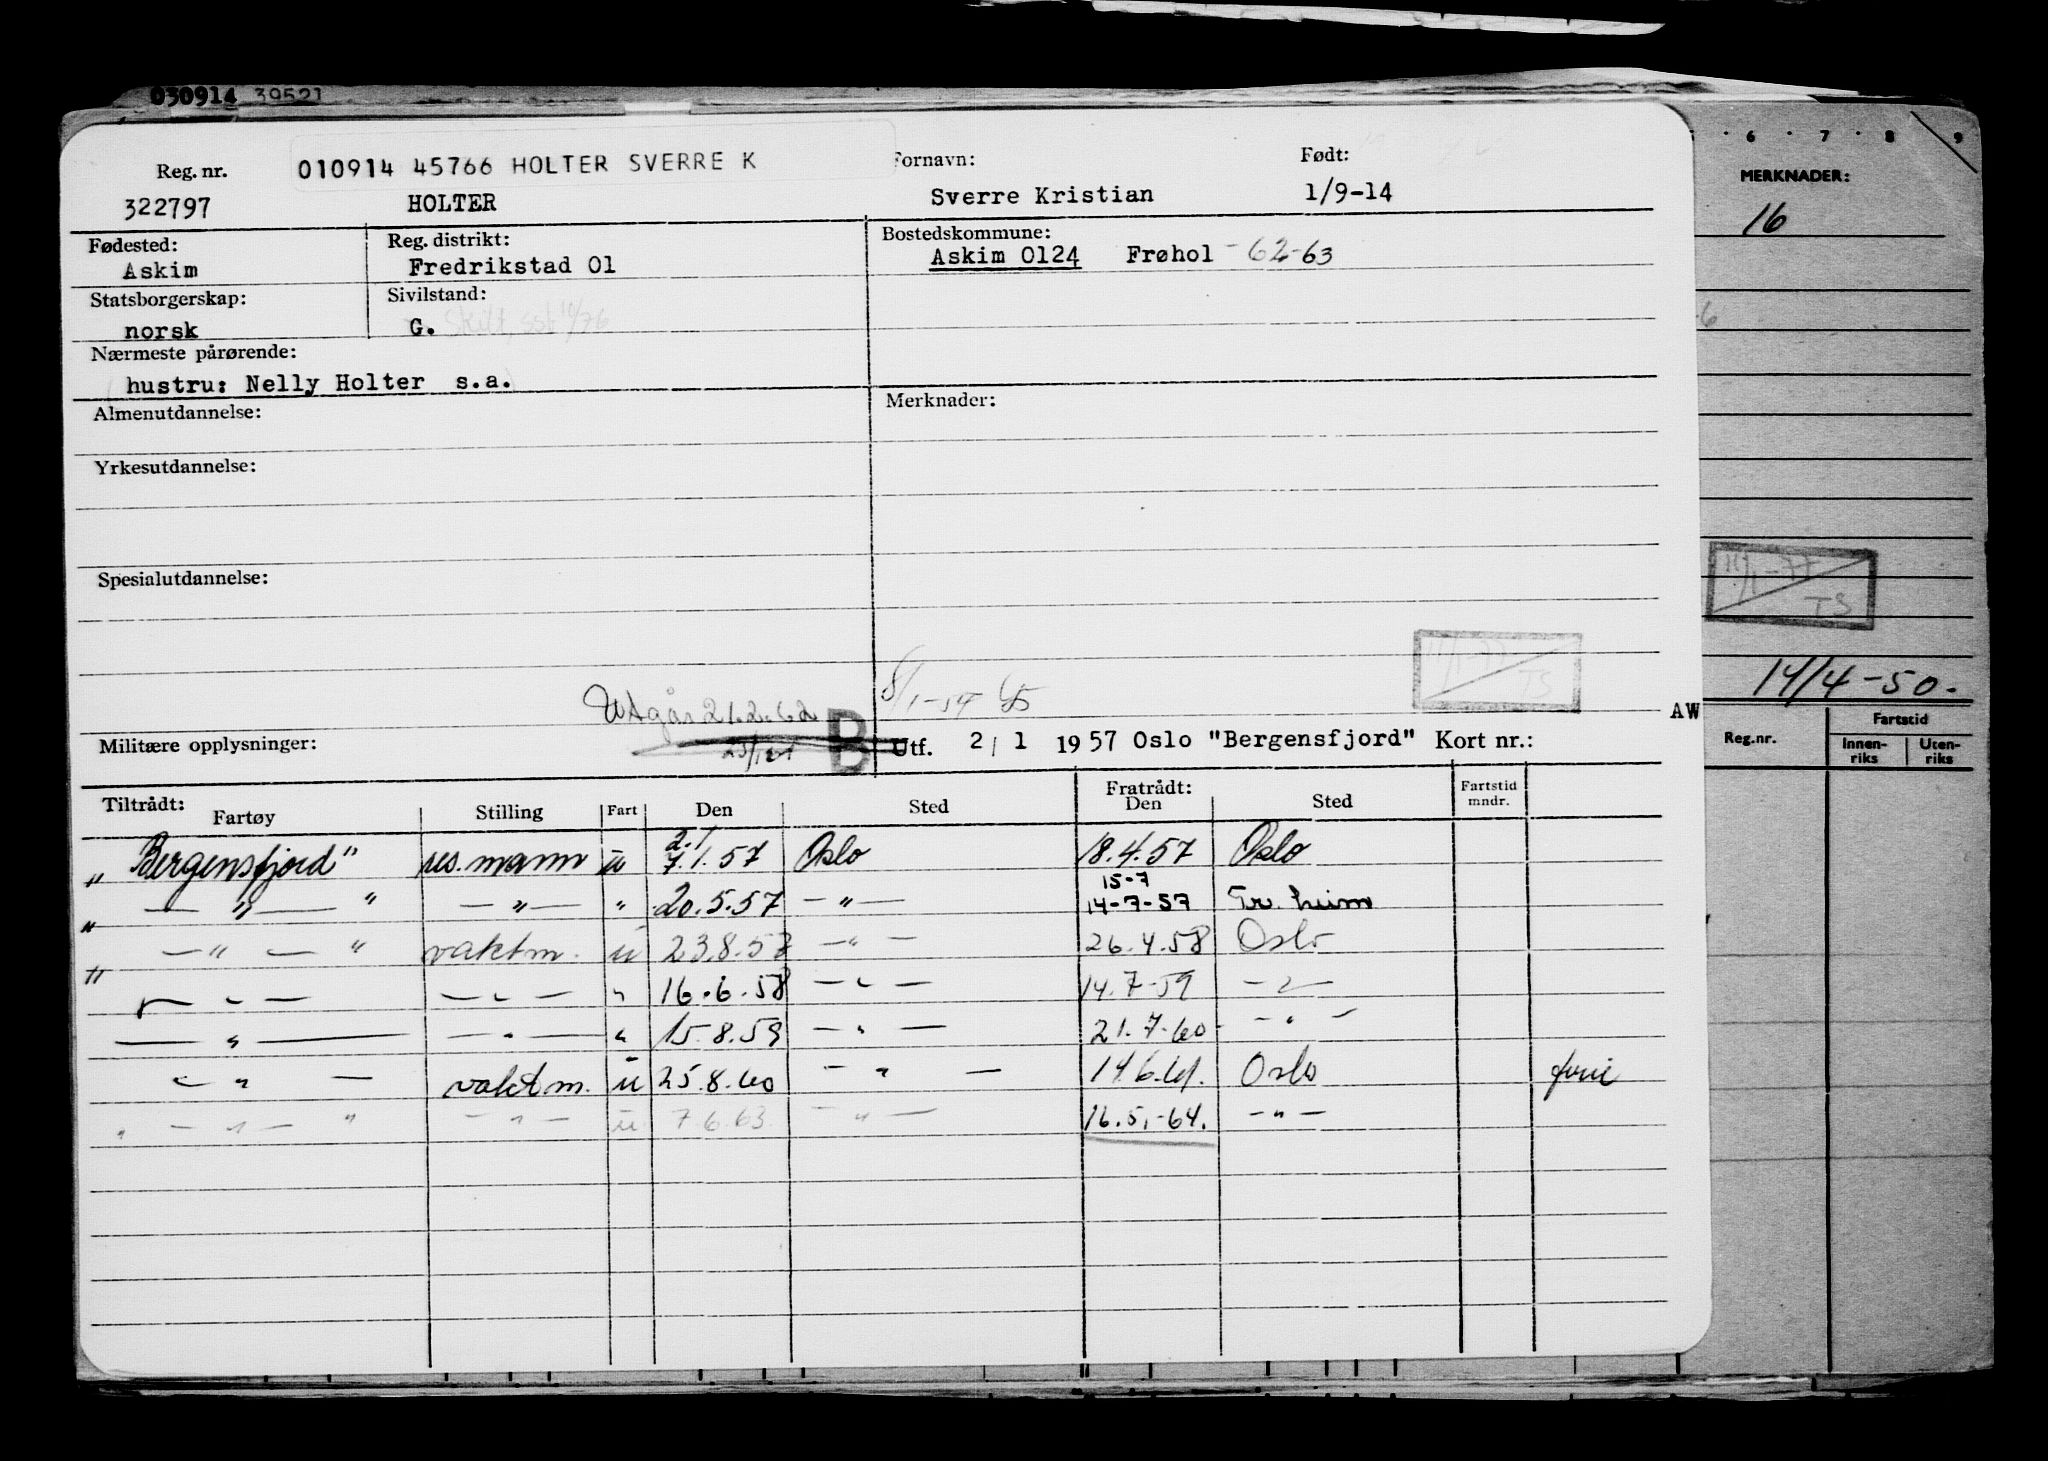 030914 39521
6 · 7 · 8 · 9
MERKNADER:
16
14/4-50.
Reg.nr.
Fartstid
Innen-riks
Uten-riks
11/1-77
TS
Reg. nr. 010914 45766 HOLTER SVERRE K Fornavn: Født:
322797 HOLTER Sverre Kristian 1/9-14
Fødested: Reg. distrikt: Bostedskommune:
Askim Fredrikstad 01 Askim 0124 Frøhol -62-63
Statsborgerskap: Sivilstand:
norsk G. Skilt, 10/76
Nærmeste pårørende:
hustru: Nelly Holter s.a.
Almenutdannelse: Merknader:
Yrkesutdannelse:
Spesialutdannelse:
11/1-77
TS
Utgår 21.2.62 8/1-57
AW
Militære opplysninger: B Utf. 2/1 1957 Oslo "Bergensfjord" Kort nr.:
Tiltrådt: Fratrådt: Fartstid mndr.
Fartøy Stilling Fart Den Sted Den Sted
2.1
"Bergensfjord" res. mann u 7.1.57 Oslo 18.4.57 Oslo
15-7
" — " — " — " — " 20.5.57 — " — 14-7-57 Tr.heim
" — " — " vaktm. u 23.8.57 — " — 26.4.58 Oslo
— " — — " — " 16.6.58 — " — 14.7-59 — " —
— " — — " — " 15.8.59 — " — 21.7.60 — " —
— " — vaktm. u 25.8.60 — " — 14.6.61. Oslo
" — " — " — " — u 7.6.63. — " — 16.5.-64. — " —